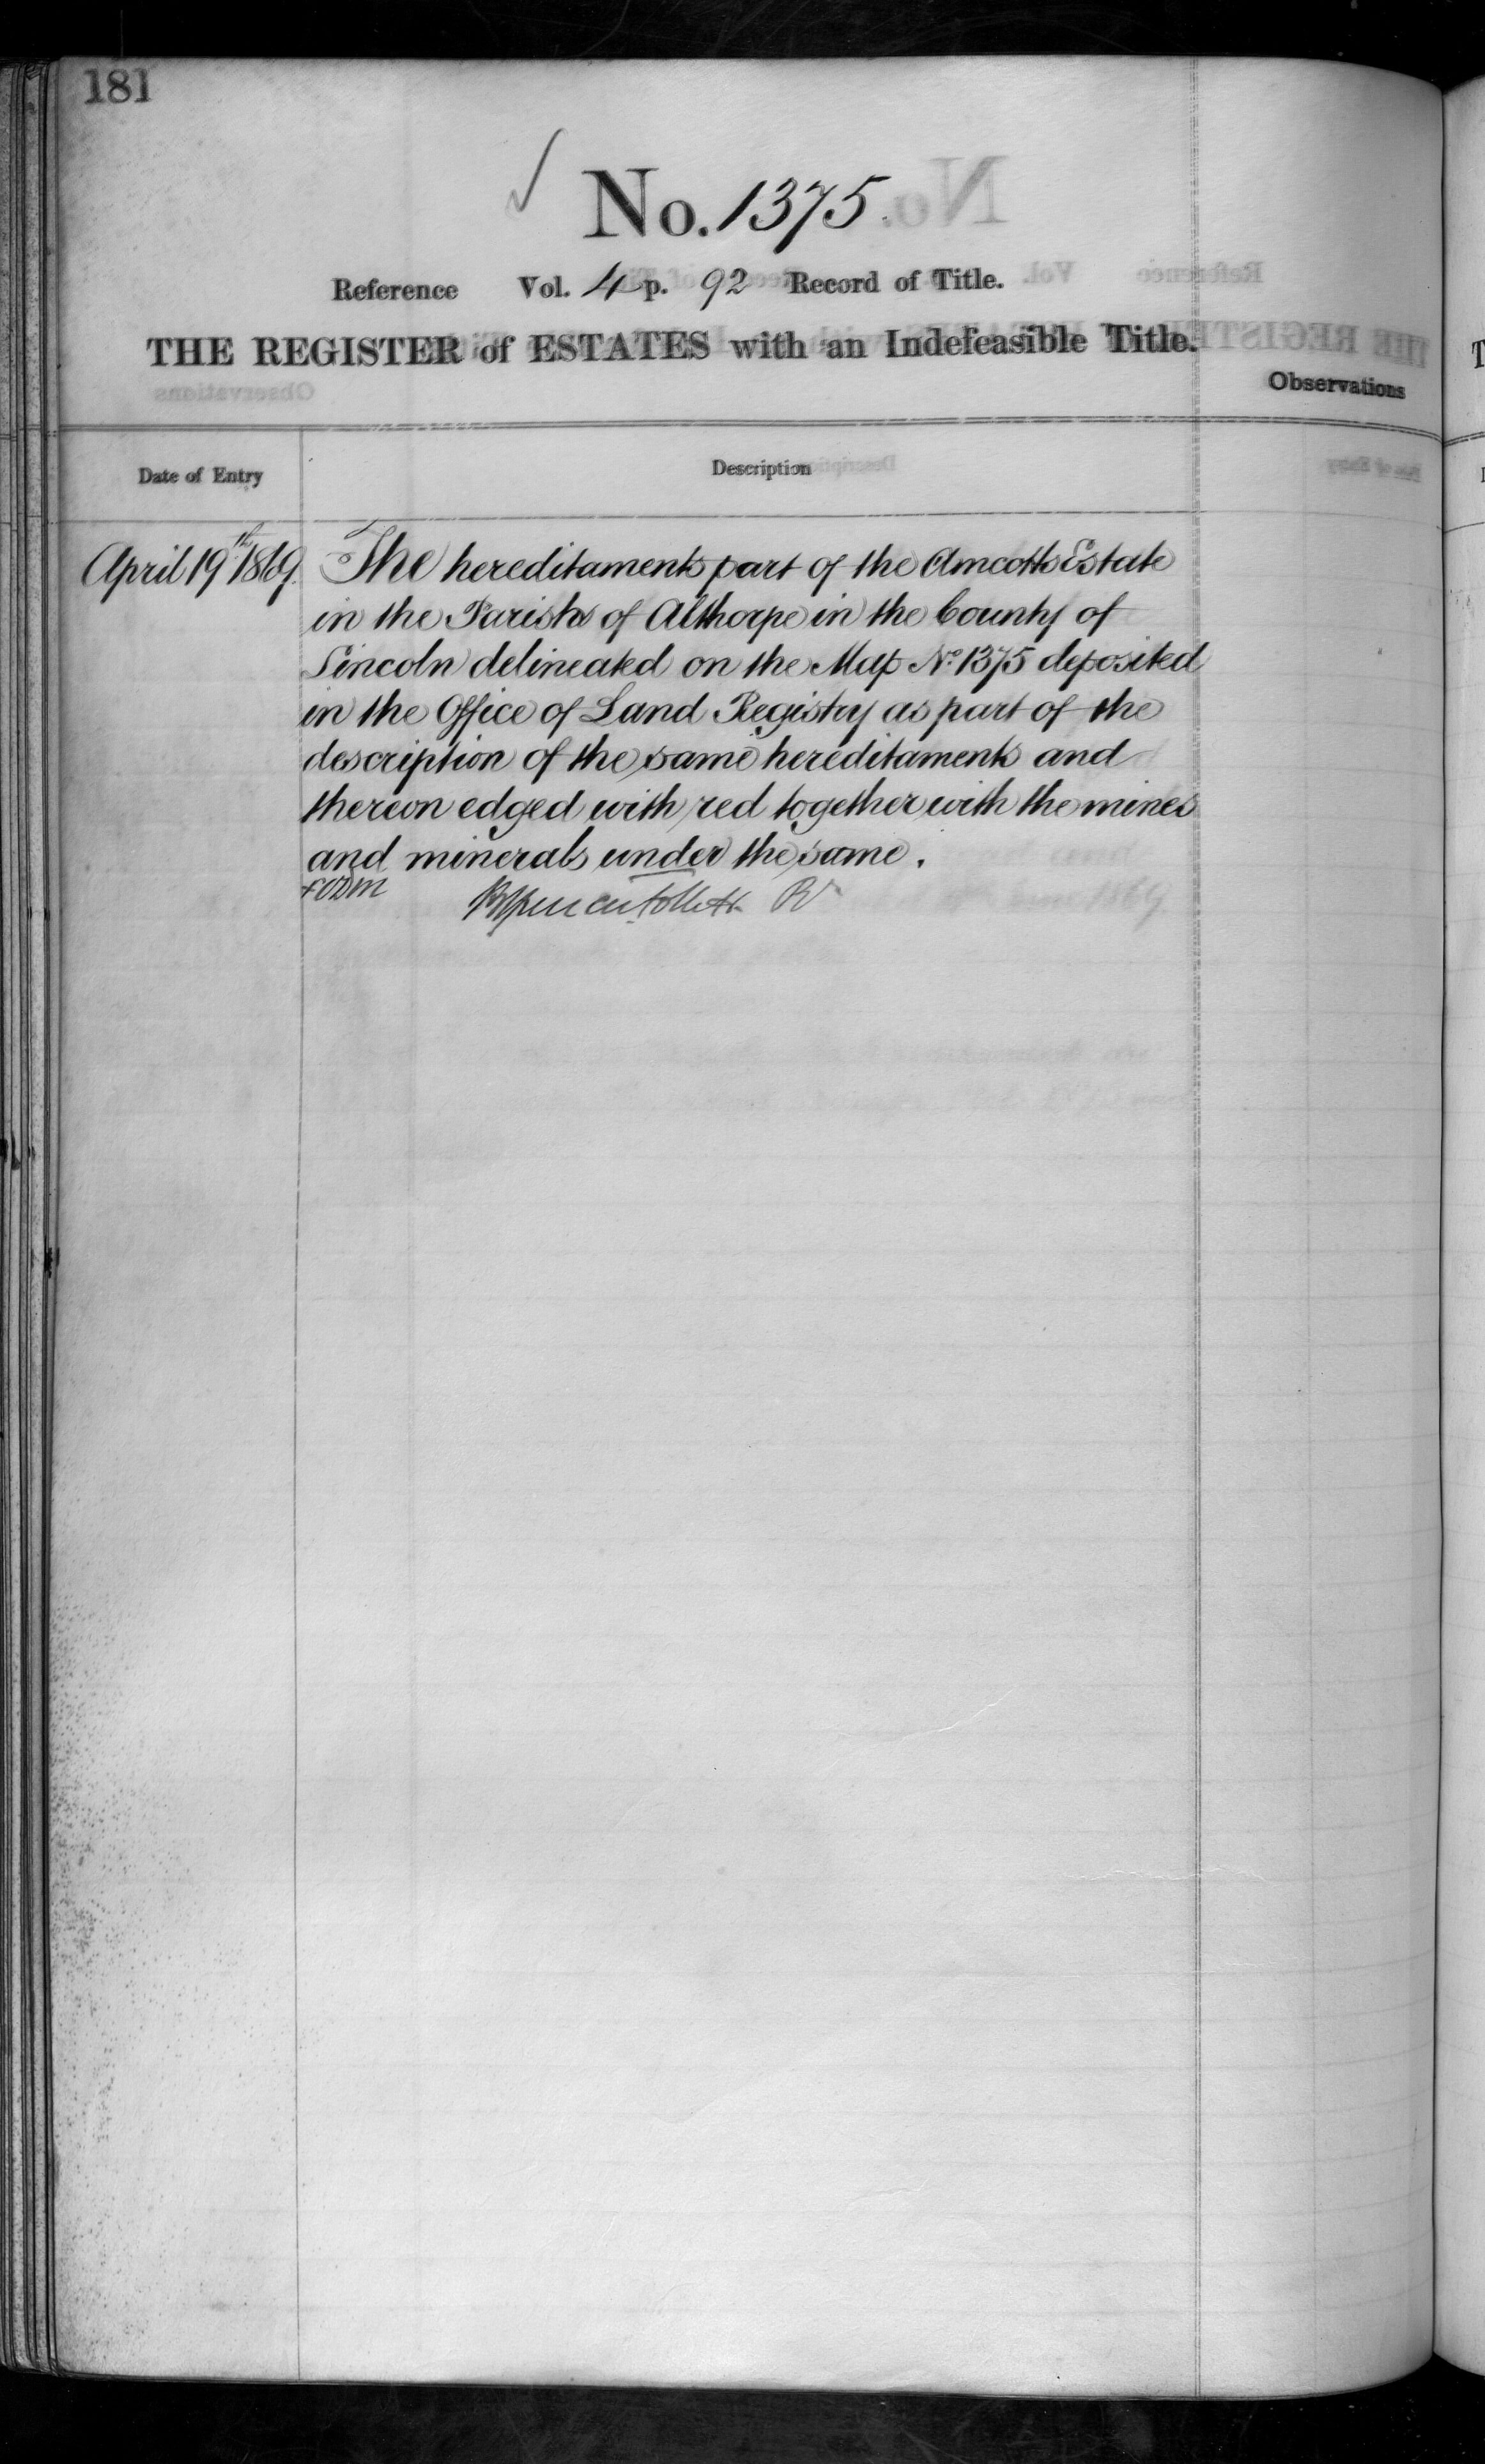 181
No. 1375.
Reference Vol. 4 p. 92 Record of Title.
THE REGISTER of ESTATES with an Indefeasible Title.
Observations
Date of Entry
Description
April 19th 1869. The hereditaments part of the Amcotts Estate
in the Parish of Althorpe in the County of
Lincoln delineated on the Map No. 1375 deposited
in the Office of Land Registry as part of the
description of the same hereditaments and
thereon edged with red together with the mines
and minerals under the same.